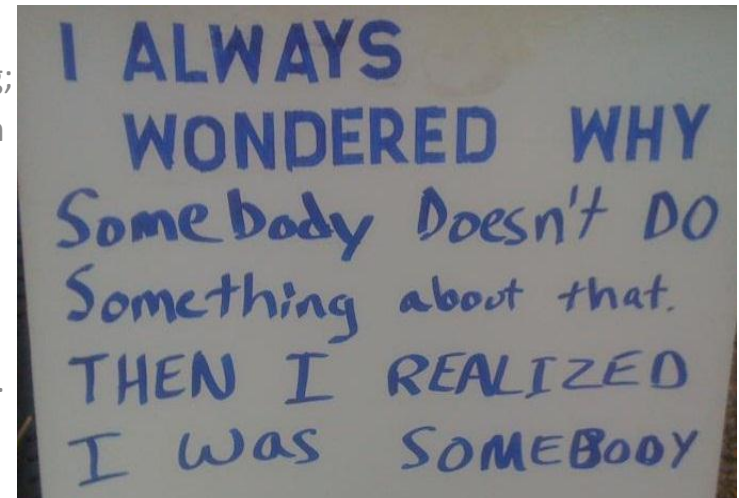 I ALWAYS
WONDERED WHY
Somebody Doesn't DO
Something about that.
THEN I REALIZED
I was SOMEBODY